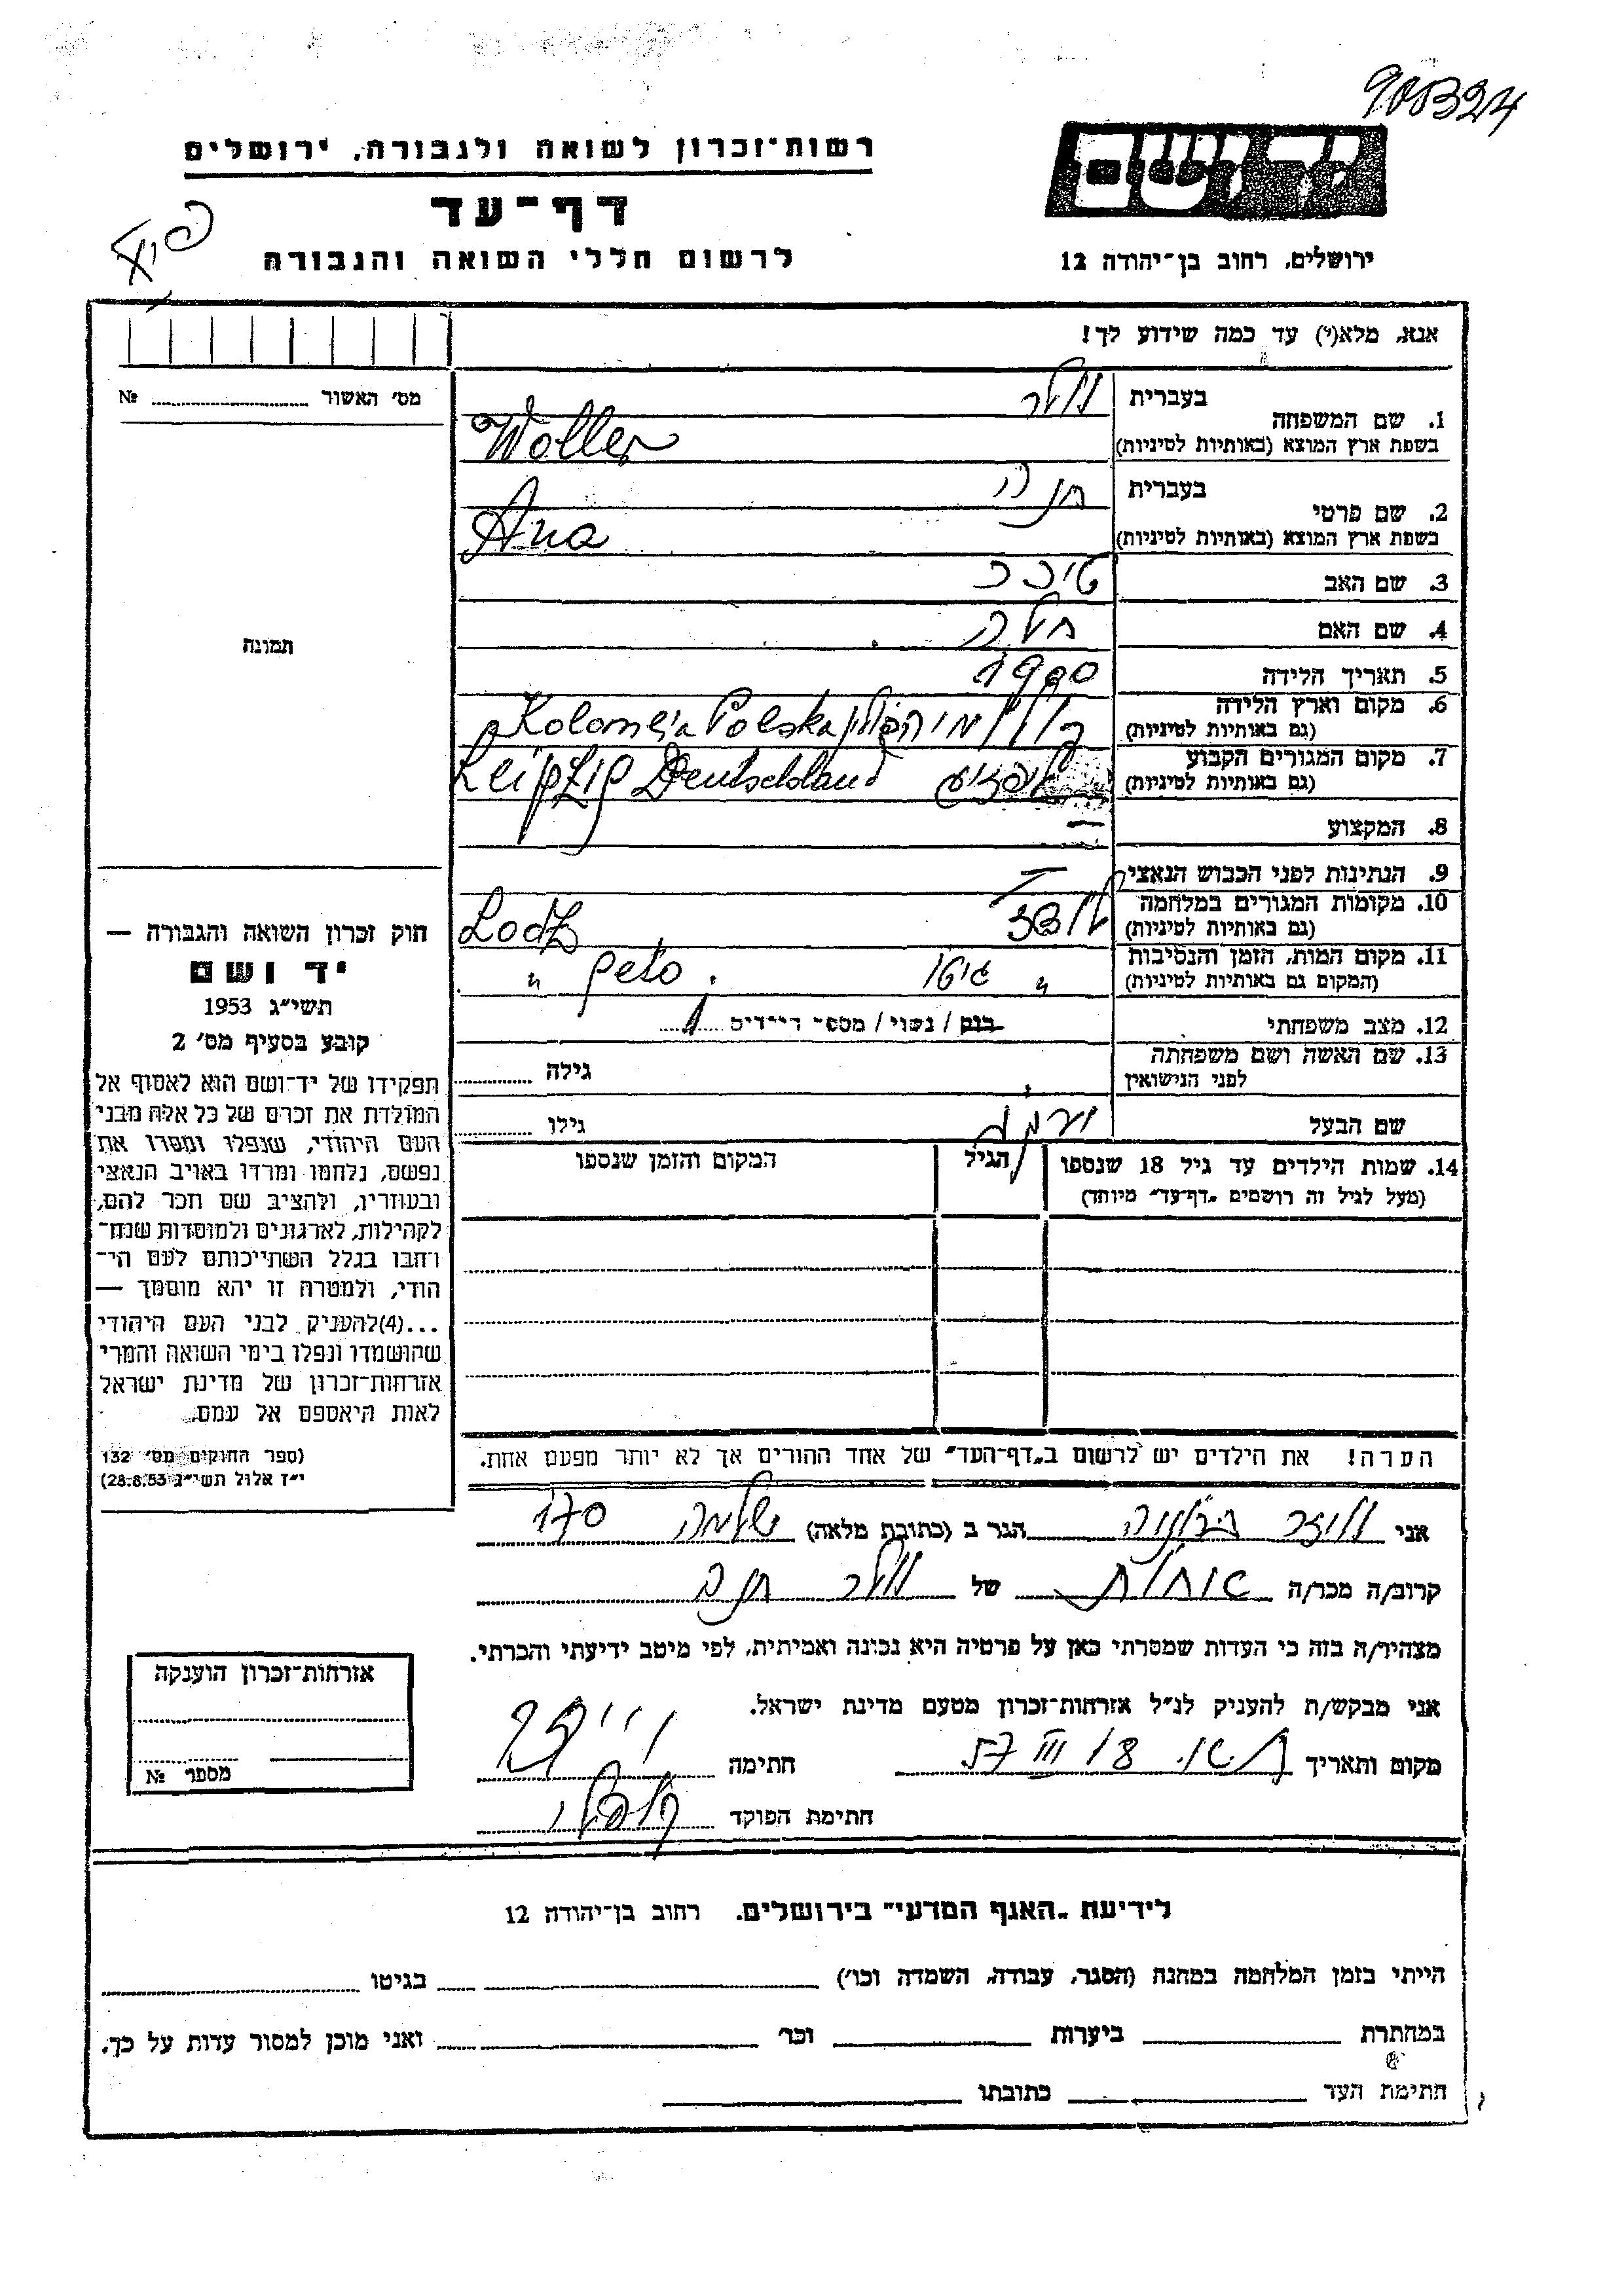 90B324
יד ושם
רשות־זכרון לשואה ולגבורה, ירושלים
דף־עד
לרשום חללי השואה והגבורה
ירושלים, רחוב בן־יהודה 12
אנא, מלא(י) עד כמה שידוע לך!
מס׳ האשור № 
1. שם המשפחה
בעברית
וולר
בשפת ארץ המוצא (באותיות לטיניות)
Woller
2. שם פרטי
בעברית
חנה
בשפת ארץ המוצא (באותיות לטיניות)
Ana
3. שם האב
4. שם האם
חיה
5. תאריך הלידה
1900
6. מקום וארץ הלידה
(גם באותיות לטיניות)
Kolomeia Polska
7. מקום המגורים הקבוע
(גם באותיות לטיניות)
Leipzig Deutschland
8. המקצוע
—
9. הנתינות לפני הכבוש הנאצי
10. מקומות המגורים במלחמה
(גם באותיות לטיניות)
לודז Lodz
11. מקום המות, הזמן והנסיבות
(המקום גם באותיות לטיניות)
״ גיטו . geto ״
12. מצב משפחתי
רווק / נשוי / מספר הילדים 1
13. שם האשה ושם משפחתה
לפני הנישואין
גילה
שם הבעל
גילו
14. שמות הילדים עד גיל 18 שנספו
(מעל לגיל זה רושמים „דף־עד״ מיוחד)
הגיל
המקום והזמן שנספו
הערה! את הילדים יש לרשום ב„דף־העד״ של אחד ההורים אך לא יותר מפעם אחת.
תמונה
חוק זכרון השואה והגבורה —
יד ושם
תשי״ג 1953
קובע בסעיף מס׳ 2
תפקידו של יד־ושם הוא לאסוף אל
המולדת את זכרם של כל אלה מבני
העם היהודי, שנפלו ומסרו את
נפשם, נלחמו ומרדו באויב הנאצי
ובעוזריו, ולהציב שם וזכר להם,
לקהילות, לארגונים ולמוסדות שנח־
רחבו בגלל השתייכותם לעם הי־
הודי, ולמטרה זו יהא מוסמך —
...(4)להעניק לבני העם היהודי
שהושמדו ונפלו בימי השואה והמרי
אזרחות־זכרון של מדינת ישראל
לאות היאספם אל עמם.
(ספר החוקים מס׳ 132
י״ז אלול תשי״ג 28.8.53)
אני הגר ב (כתובת מלאה) שלמה 170
קרוב/ה מכר/ה אחות של וולר חנה
מצהיר/ה בזה כי העדות שמסרתי כאן על פרטיה היא נכונה ואמיתית, לפי מיטב ידיעתי והכרתי.
אני מבקש/ת להעניק לנ״ל אזרחות־זכרון מטעם מדינת ישראל.
מקום ותאריך 18 III 57 חתימה
חתימת הפוקד
אזרחות־זכרון הוענקה
מספר №
לידיעת „האגף המדעי״ בירושלים. רחוב בן־יהודה 12
הייתי בזמן המלחמה במחנה (הסגר, עבודה, השמדה וכו׳) בגיטו
במחתרת ביערות וכו׳ ואני מוכן למסור עדות על כך.
חתימת העד כתובתו